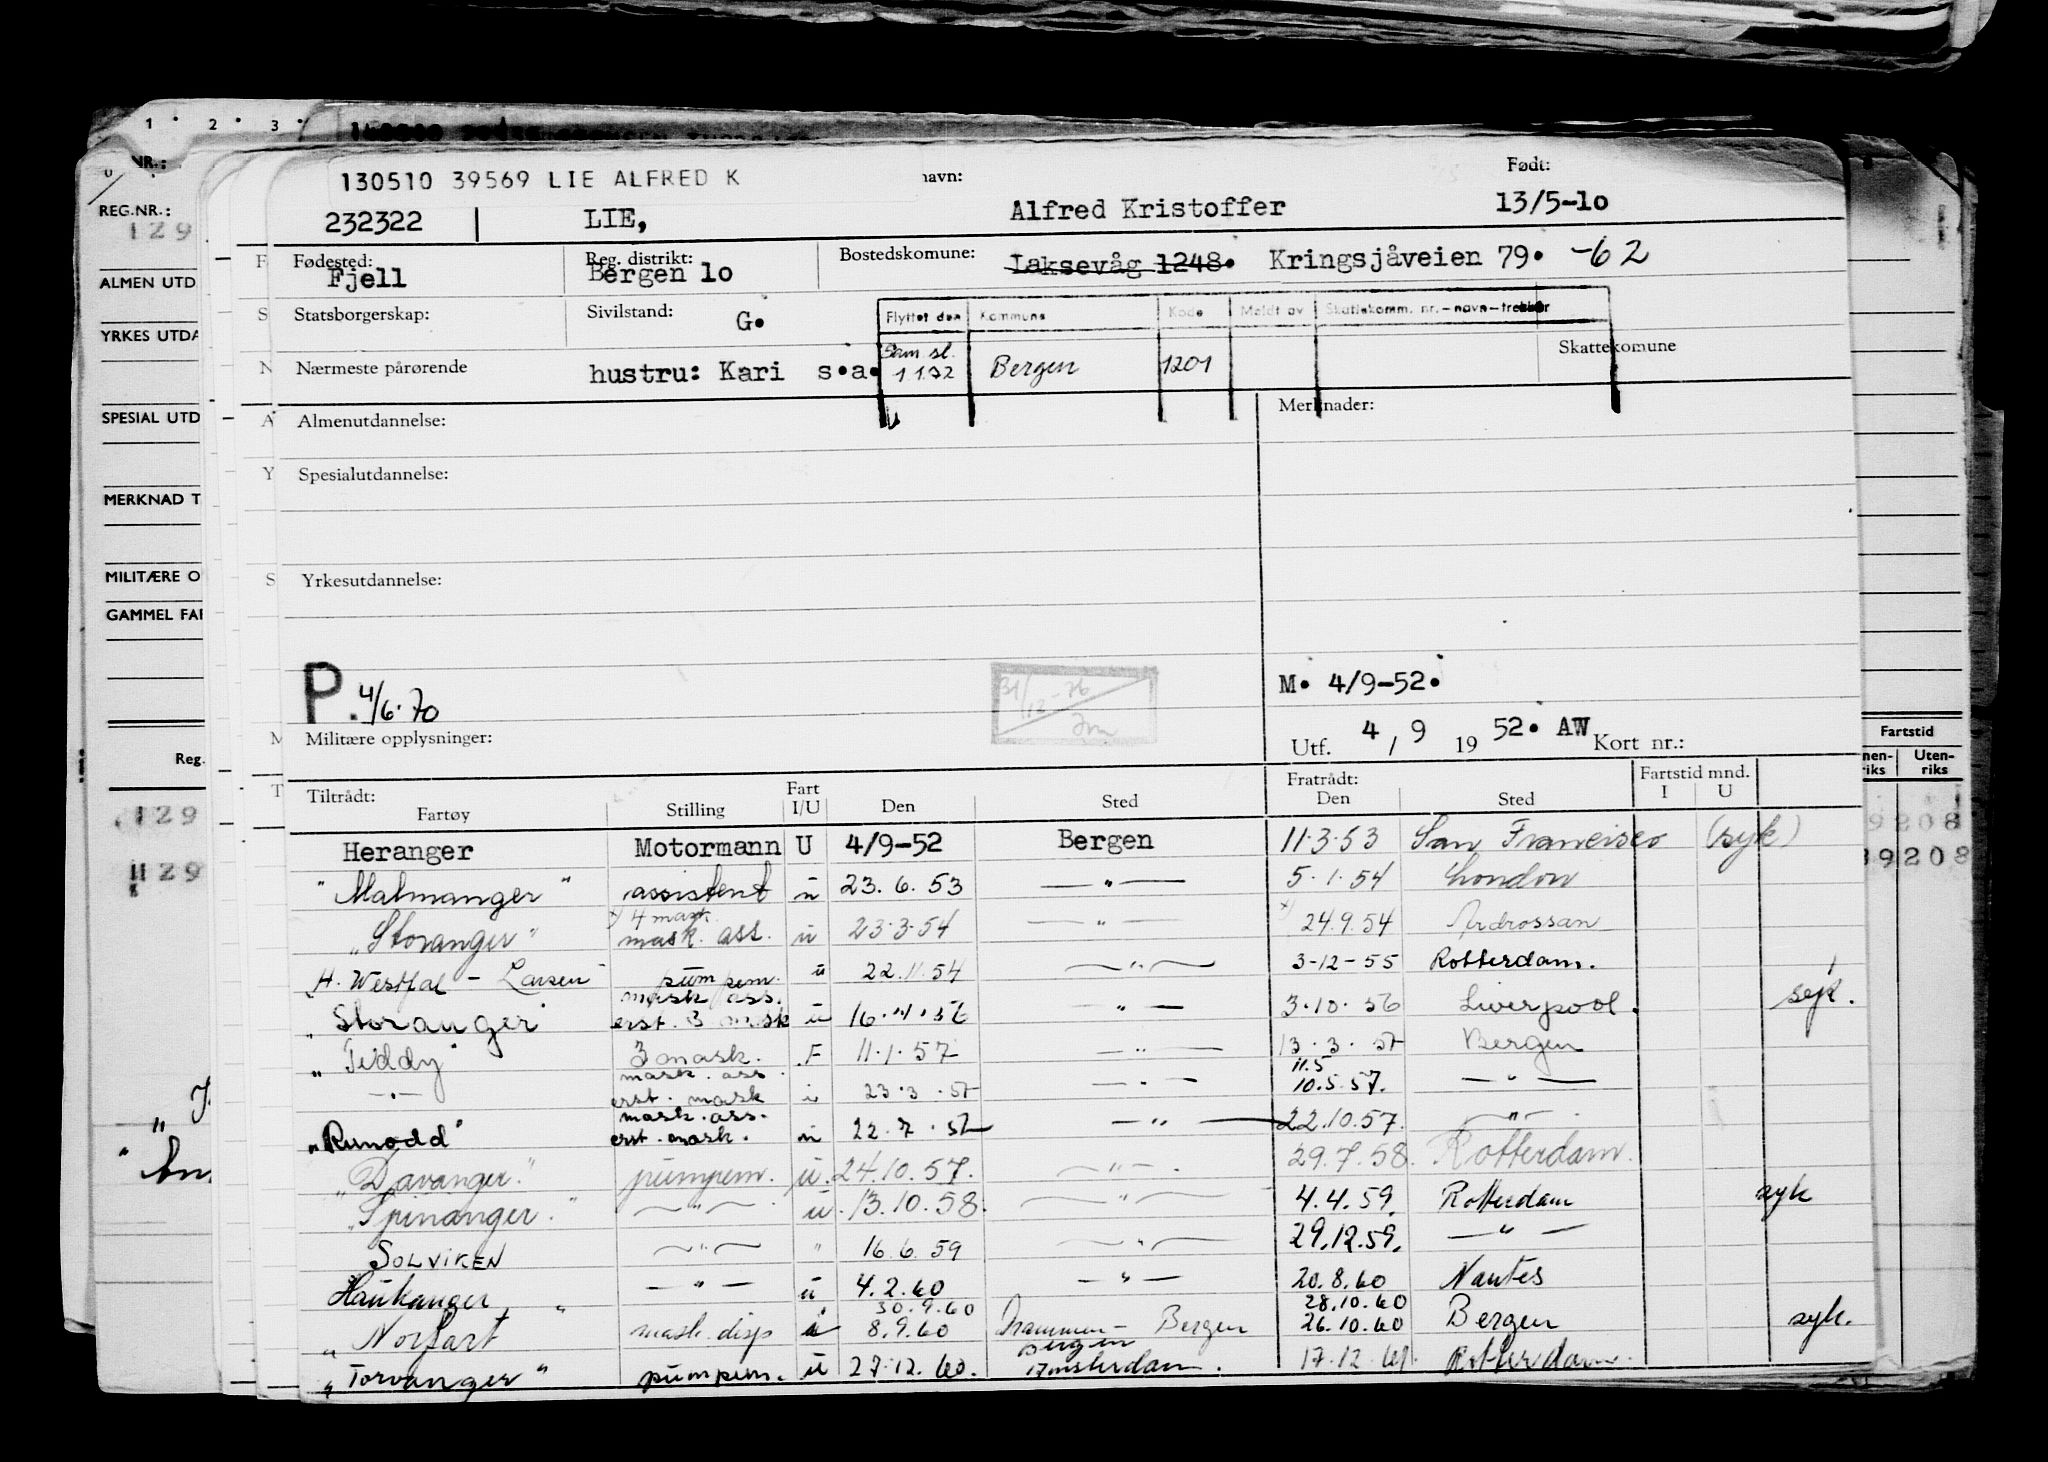 1 · 2 · 3 ·
NR.:
130510 39569 LIE ALFRED K
navn:
Født:
REG.NR.:
129
232322 LIE, Alfred Kristoffer 13/5-1o
Fødested: Reg. distrikt: Bostedskomune:
Fjell Bergen 1o Laksevåg 1248. Kringsjåveien 79. -62
ALMEN UTD
Statsborgerskap: Sivilstand: G.
Flyttet den Kommune Kode Meldt av Skattekomm. nr.-navn-trekker
YRKES UTDA
Skattekomune
Nærmeste pårørende hustru: Kari s.a. Sam.sl. 1 1.72 Bergen 1201
SPESIAL UTD
Almenutdannelse: Merknader:
Spesialutdannelse:
MERKNAD T
MILITÆRE O
Yrkesutdannelse:
GAMMEL FAR
P. 4/6.70
31/12-76
M. 4/9-52.
Militære opplysninger: Utf. 4 / 9 19 52. AW Kort nr.:
Fartstid
Reg.
nen-riks Uten-riks
Tiltrådt: Fratrådt: Fartstid mnd.
Fartøy Stilling Fart I/U Den Sted Den Sted I U
Heranger Motormann U 4/9-52 Bergen 11.3.53 San Francisco (syk)
"Malmanger" assistent u 23.6.53 — " — 5.1.54 London
"Storanger" x) 4 mask. mask. ass. u 23.3.54 — " — x) 24.9.54 Ardrossan
"H. Westfal-Larsen" pumpem. u 22.11.54 — " — 3-12-55 Rotterdam.
"Storanger" mask ass. erst. 3 mask u 16.4.56 — " — 3.10.56 Liverpool. syk.
"Teddy" 3 mask. F 11.1.57 — " — 13.3.57 Bergen
— " — mask. ass. erst. mask 23.3.57 — " — 11.5 10.5.57. — " —
"Runodd" mask. ass. erst. mask. u 22.7.57 — " — 22.10.57. — " —
"Davanger." pumpem. u. 24.10.57. — " — 29.7.58. Rotterdam.
"Spinanger." — " — u. 13.10.58. — " — 4.4.59. Rotterdam syk
SOLVIKEN — " — " 16.6.59 — " — 29.12.59. — " —
Haukanger — " — u 4.2.60 — " — 20.8.60 Nantes
"Norfart" mask. disp u 30.9.60 8.9.60 Drammen - Bergen 28.10.60 26.10.60 Bergen syk.
"Torvanger" pumpem. u 27.12.60. Bergen Amsterdam. 17.12.61. Rotterdam.
129
1129
9208
39208